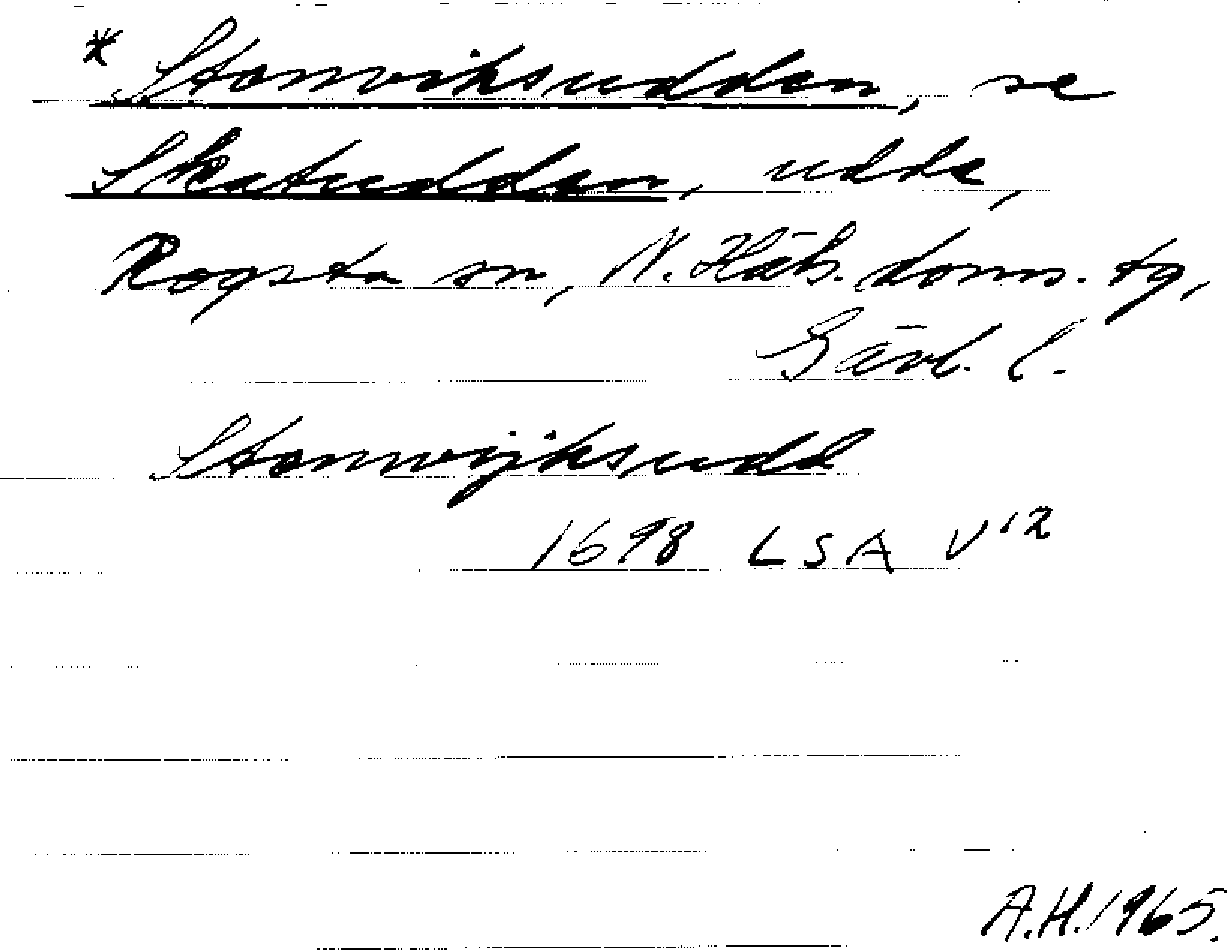 * Stomviksudden, se
Skatudden, udde,
Rogsta sn, N. Häls. doms. tg,
Gävl. l.
Stomwijksudd
1698 LSA V12
A.H. 1965.